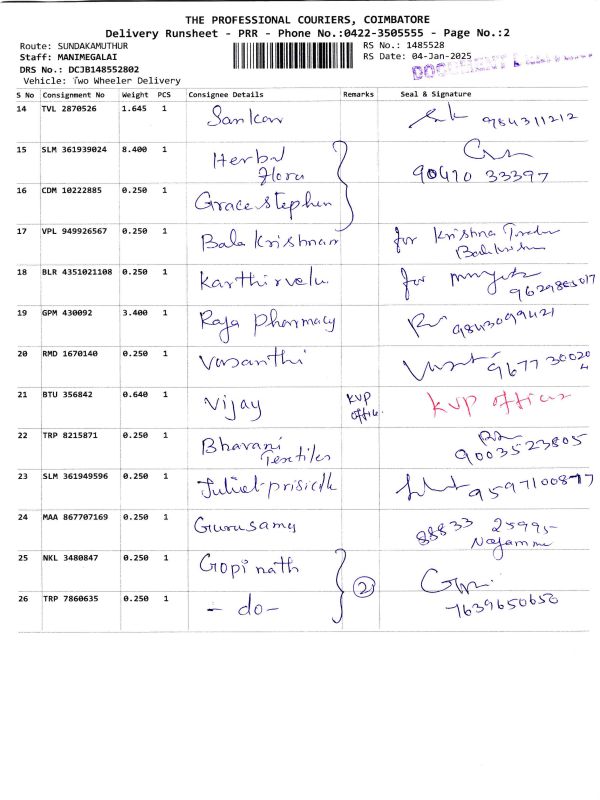 THE PROFESSIONAL COURIERS, COIMBATORE
Delivery Runsheet - PRR - Phone No.:0422-3505555 - Page No.:2
Route: SUNDAKAMUTHUR RS No.: 1485528
Staff: MANIMEGALAI RS Date: 04-Jan-2025
DRS No.: DCJB148552802
Vehicle: Two Wheeler Delivery
S No Consignment No Weight PCS Consignee Details Remarks Seal & Signature
14 TVL 2870526 1.645 1 Sankar 984311212
15 SLM 361939024 8.400 1 Herbal Flora 90470 33397
16 CDM 10222885 0.250 1 Grace stephen
17 VPL 949926567 0.250 1 Bala Krishnan for Krishna
18 BLR 4351021108 0.250 1 Karthirvelu for
19 GPM 430092 3.400 1 Raja pharmacy 9843099421
20 RMD 1670140 0.250 1 Vasanthi 9677 300204
21 BTU 356842 0.640 1 Vijay KVP KVP office
22 TRP 8215871 0.250 1 Bhavani Textiles 9003523805
23 SLM 361949596 0.250 1
24 MAA 867707169 0.250 1 Gurusamy 88833 25995
25 NKL 3480847 0.250 1 Gopinath 2
26 TRP 7860635 0.250 1 - do - 7639650650